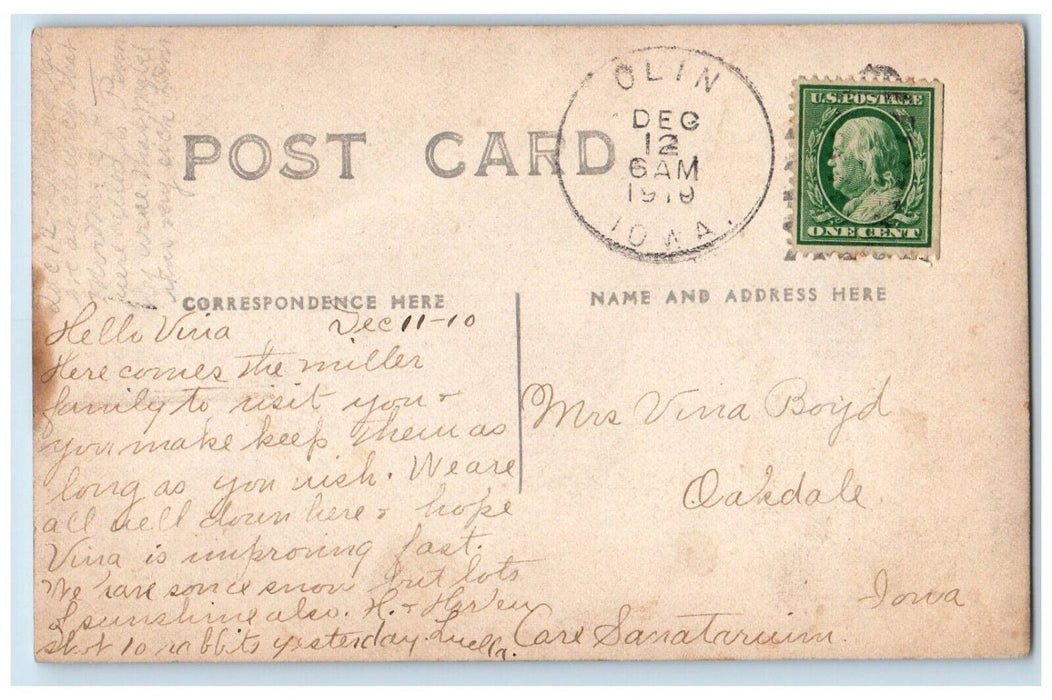 POST CARD
OLIN
DEC
12
6AM
1910
IOWA.
U.S. POSTAGE
ONE CENT
CORRESPONDENCE HERE
NAME AND ADDRESS HERE
Hello Vina Dec 11-10
Here comes the miller
family to visit you &
you make keep them as
long as you wish. We are
all well down here & hope
Vina is improving fast.
We have some snow but lots
of sunshine also. H. &
shot 10 rabbits yesterday. Luella.
Mrs Vina Boyd
Oakdale
Iowa
Care Sanatarium.
Dec 12